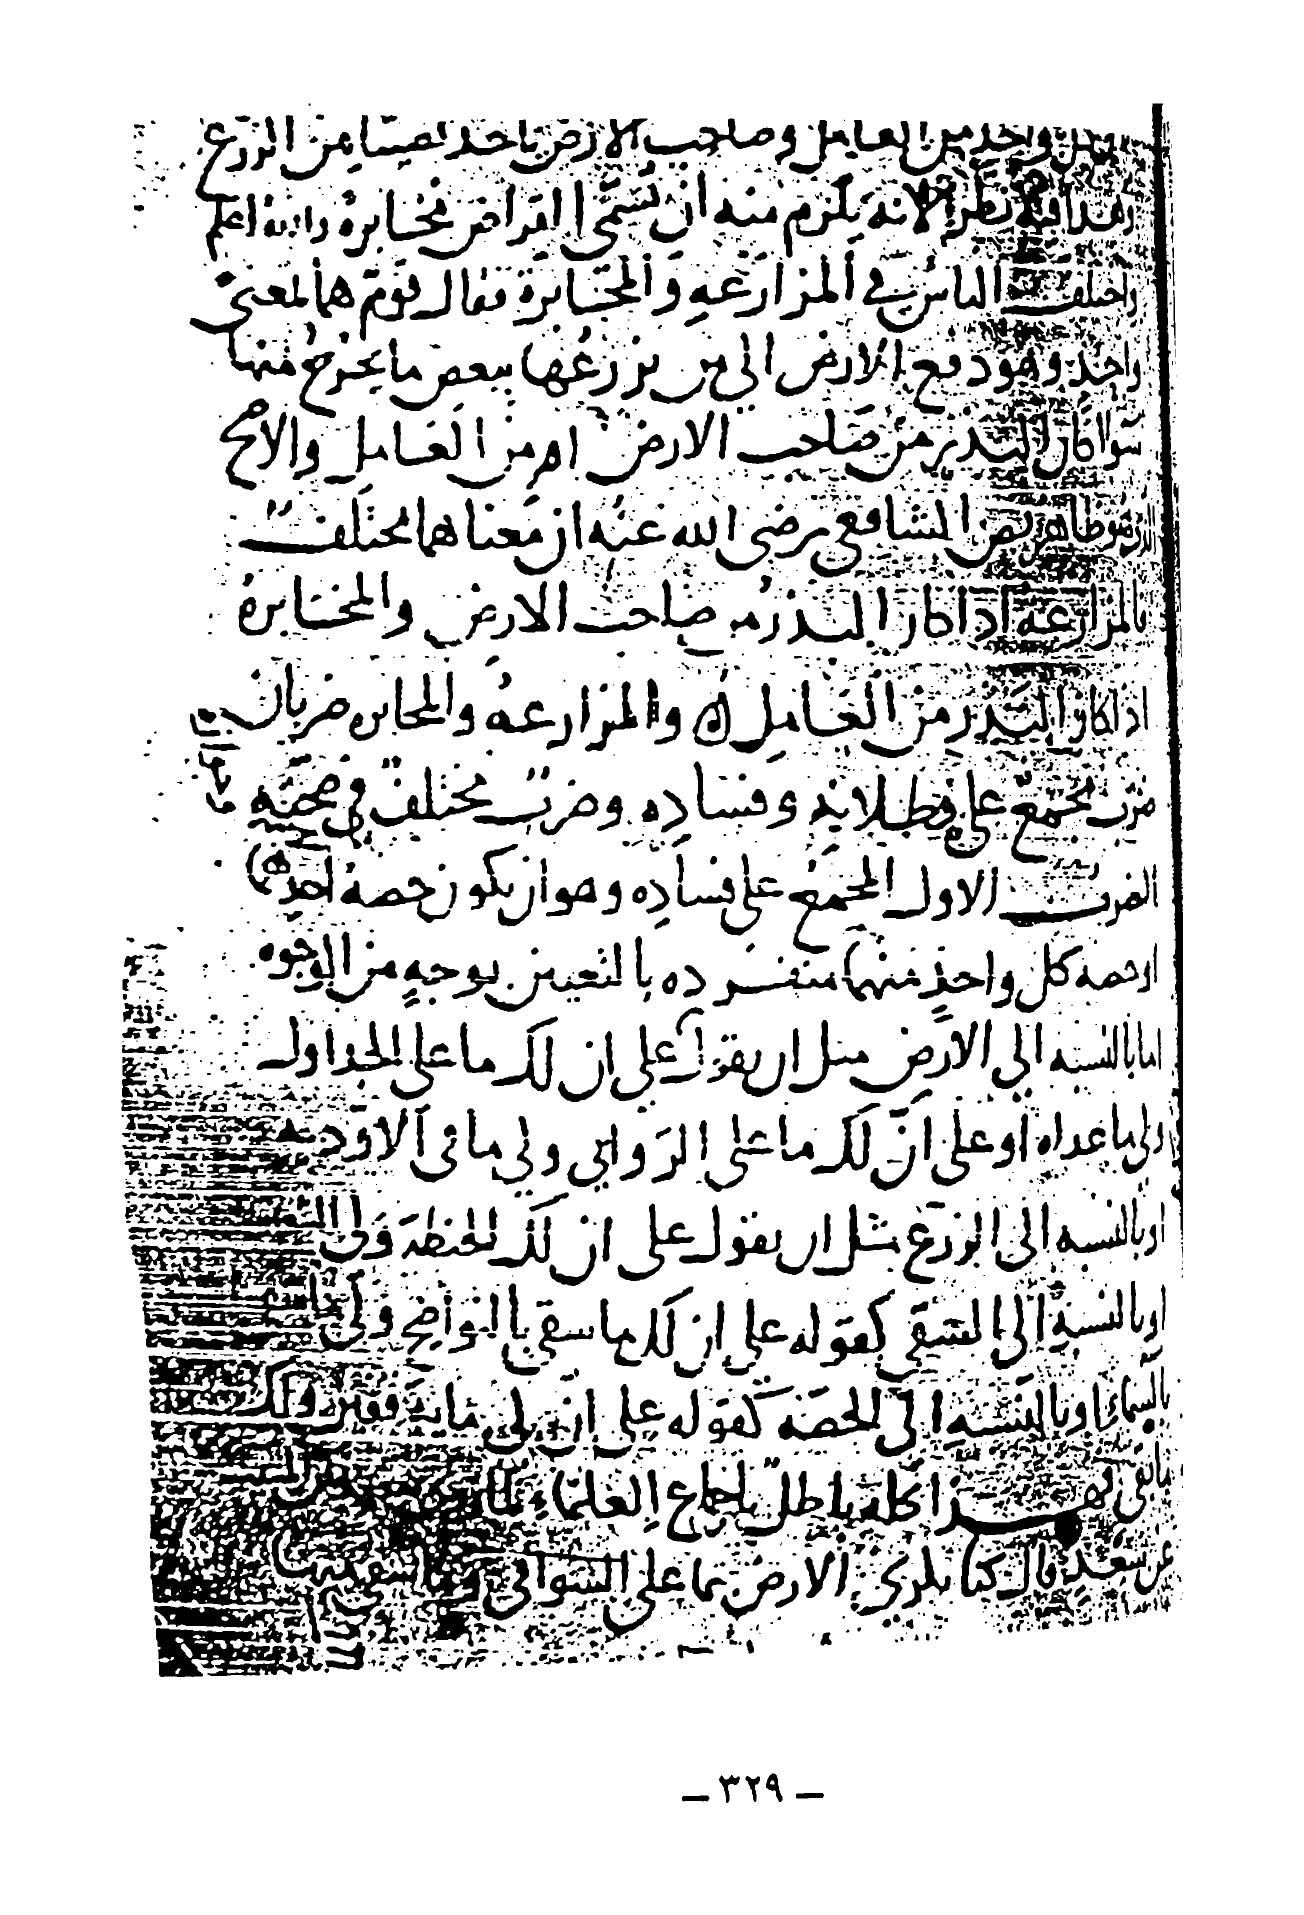 واحد من العامل وصاحب الارض ياخذ نصيبا من الزرع
وهذا فيه نظر لانه يلزم منه ان تسمى القراض مخابره والله اعلم
واختلف الناس في المزارعه والمخابرة فقال قوم هما لمعنى
واحد وهو دفع الارض الى من يزرعها ببعض ما يخرج منها
سوا كان البذر من صاحب الارض ام من العامل والاصح
وهو ظاهر نص الشافعي رضى الله عنه ان معناهما مختلف
بالمزارعه اذا كان البذر من صاحب الارض والمخابرة
اذا كان البذر من العامل والمزارعه والمخابره ضربان
ضرب مجمع على بطلانه وفساده وضرب مختلف في صحته
الضرب الاول المجمع على فساده وهو ان يكون حصة احدهما
او حصه كل واحد منهما منفرده بالتعيين بوجه من الوجوه
اما بالنسبه الى الارض مثل ان يقول على ان لك ما على الجداول
ولى ما عداه او على ان لك ما على الروابي ولي ما في الاوديه
او بالنسبه الى الزرع مثل ان يقول على ان لك الحنطه ولى
او بالنسبة الى السقي كقوله على ان لك ما سقي بالنواضح ولي ما
بالسماء او بالنسبه الى الحصه كقوله على ان لي مايه قفيز ولك
ما بقي فهذا كله باطل باجماع العلماء لما
عن سعد قال كنا نكري الارض بما على السواقي وما سقي منها
ـ ٣٢٩ ـ